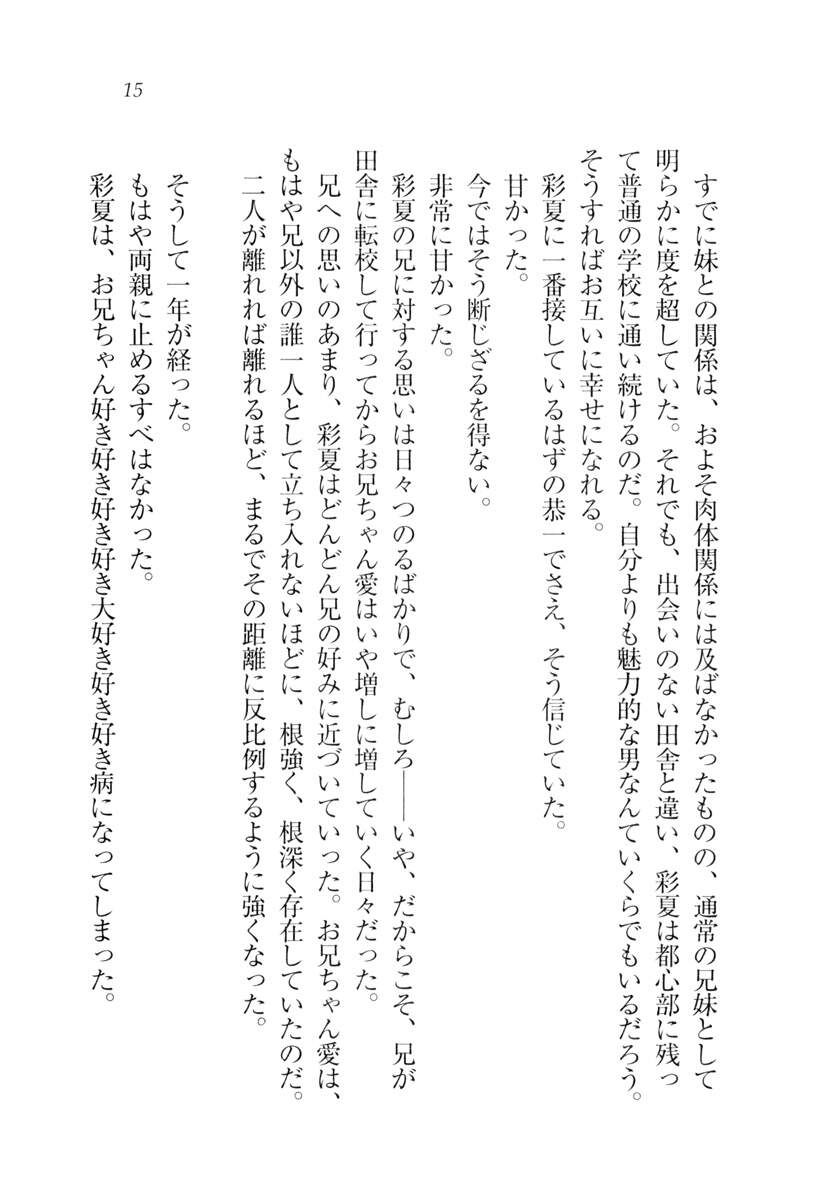 15
　すでに妹との関係は、およそ肉体関係には及ばなかったものの、通常の兄妹として
明らかに度を超していた。それでも、出会いのない田舎と違い、彩夏は都心部に残っ
て普通の学校に通い続けるのだ。自分よりも魅力的な男なんていくらでもいるだろう。
そうすればお互いに幸せになれる。
　彩夏に一番接しているはずの恭一でさえ、そう信じていた。
　甘かった。
　今ではそう断じざるを得ない。
　非常に甘かった。
　彩夏の兄に対する思いは日々つのるばかりで、むしろ――いや、だからこそ、兄が
田舎に転校して行ってからお兄ちゃん愛はいや増しに増していく日々だった。
　兄への思いのあまり、彩夏はどんどん兄の好みに近づいていった。お兄ちゃん愛は、
もはや兄以外の誰一人として立ち入れないほどに、根強く、根深く存在していたのだ。
　二人が離れれば離れるほど、まるでその距離に反比例するように強くなった。
　そうして一年が経った。
　もはや両親に止めるすべはなかった。
　彩夏は、お兄ちゃん好き好き好き好き大好き好き好き病になってしまった。